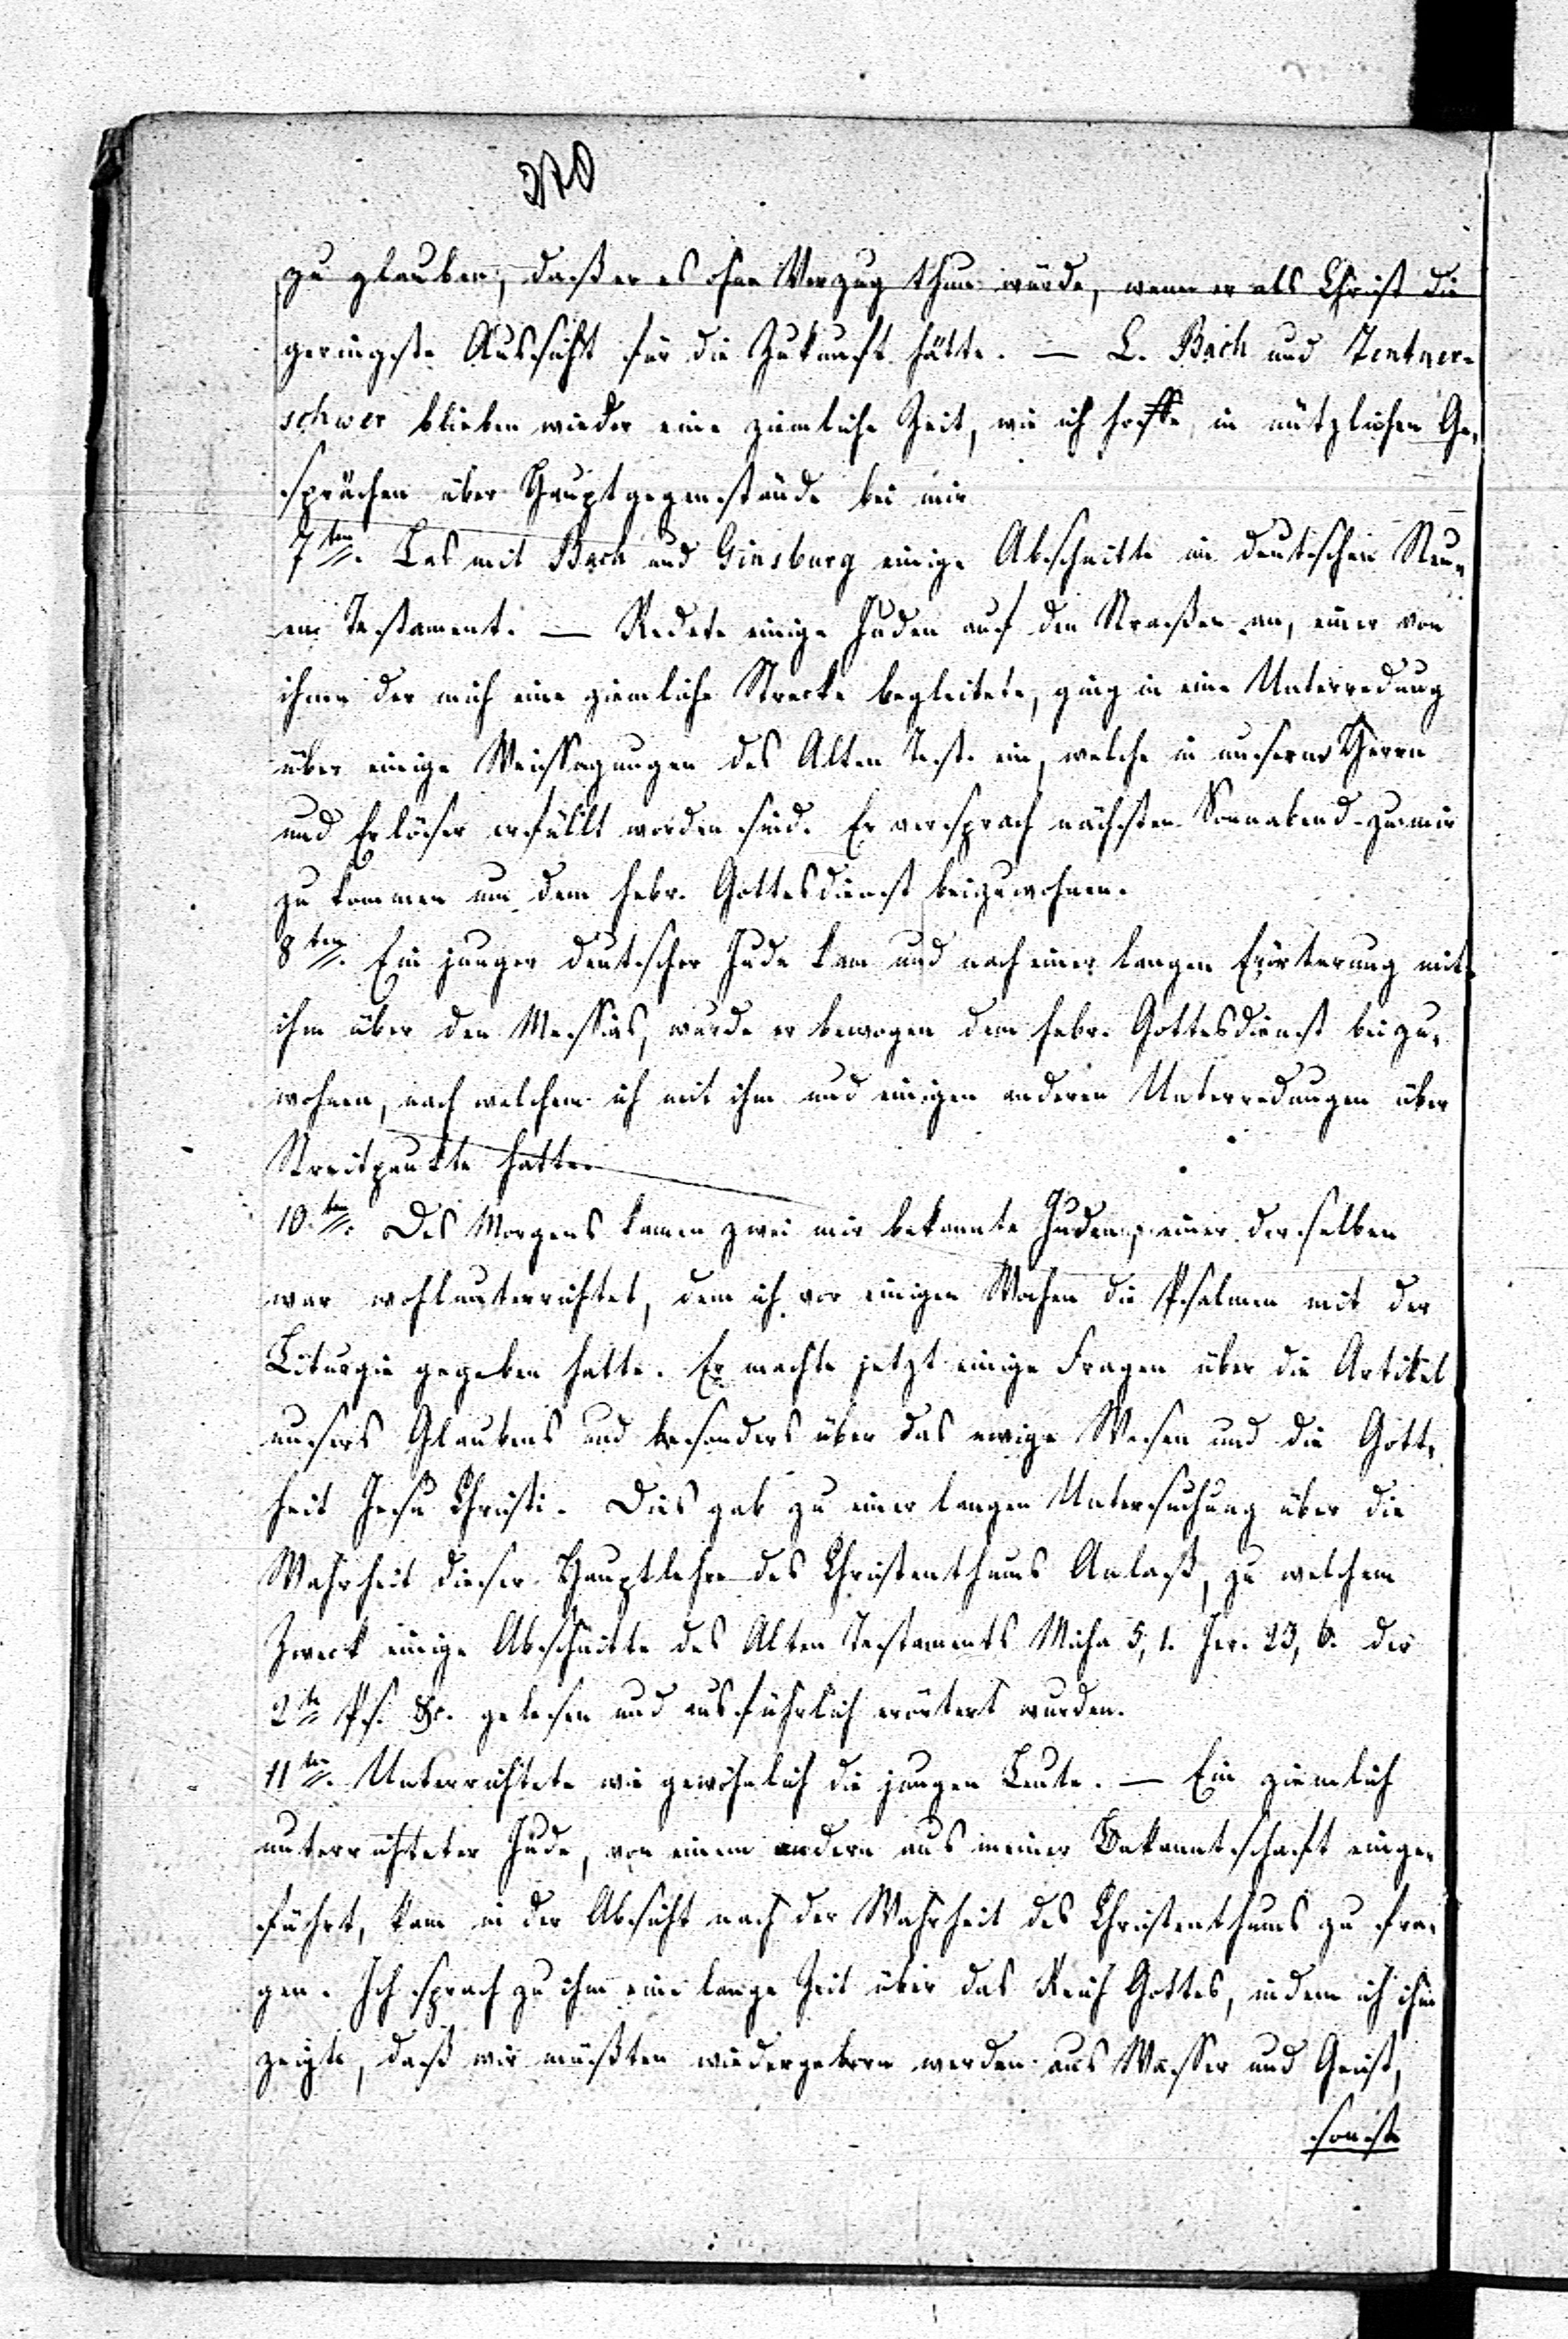 zu glauben, daß er es ohne Verzug thun würde, wenn er als Christ die
geringste Aussicht für die Zukunft hätte. — L. Bach und Zentner-
schwer blieben wieder eine ziemliche Zeit, wie ich hoffe, in nützlichen Ge-
sprächen über Hauptgegenstände bei mir
7ten. Las mit Bach und Ginsburg einige Abschnitte im deutschen Neu-
en Testament. — Redete einige Juden auf den Straßen an, einer von
ihnen der mich eine ziemliche Strecke begleitete, ging in eine Unterredung
über einige Weissagungen des Alten Test. ein, welche in unserm Herrn
und Erlöser erfüllt worden sind. Er versprach nächsten Sonnabend zu mir
zu kommen um dem hebr. Gottesdienst beizuwohnen.
8ten. Ein junger deutscher Jude kam und nach einer langen Erörterung mit
ihm über den Messias, wurde er bewogen dem hebr. Gottesdienst beizu-
wohnen, nach welchem ich mit ihm und einigen anderen Unterredungen über
Streitpunkte hatte.
10.ten. Des Morgens kamen zwei mir bekannte Juden, einer derselben
war wohlunterrichtet, dem ich vor einigen Wochen die Psalmen mit der
Liturgie gegeben hatte. Er machte jetzt einige Fragen über die Artikel
unsers Glaubens und besonders über das ewige Wesen und die Gott-
heit Jesu Christi. Dies gab zu einer langen Untersuchung über die
Wahrheit dieser Hauptlehre des Christenthums Anlaß, zu welchem
Zweck einige Abschnitte des Alten Testaments Micha 5, 1. Jer. 23, 6. der
2te Ps. &c. gelesen und ausführlich erörtert wurden.
11ten. Unterrichtete wie gewöhnlich die jungen Leute. — Ein ziemlich
unterrichteter Jude, von einem andern aus meiner Bekanntschaft einge-
führt, kam in der Absicht nach der Wahrheit des Christenthums zu fra-
gen. Ich sprach zu ihm eine lange Zeit über das Reich Gottes, indem ich ihm
zeigte, daß wir müßten wiedergeboren werden aus Wasser und Geist,
sonst